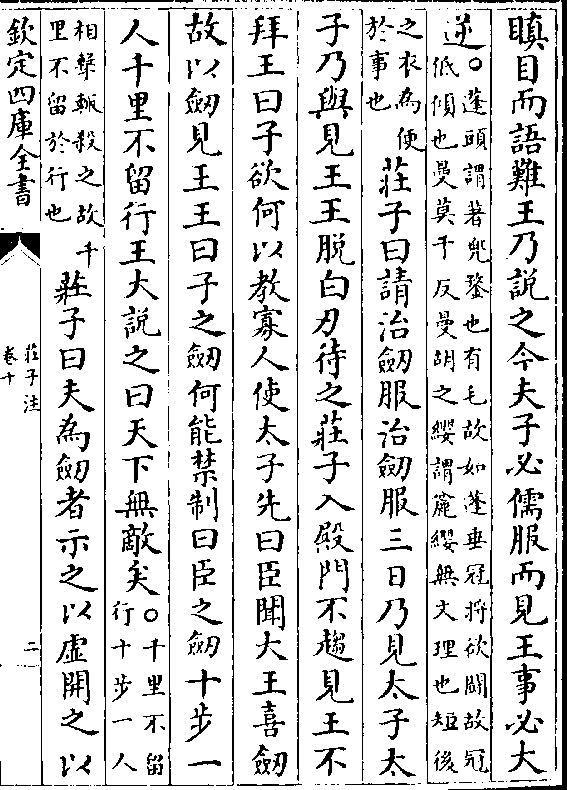 瞋目而語難王乃說之今夫子必儒服而見王事必大
逆○蓬頭謂著兜鍪也有毛故如蓬垂冠將欲鬭故冠
低傾也曼莫干反曼胡之纓謂麤纓無文理也短後
之衣為便
於事也
莊子曰請治劔服治劔服三日乃見太子太
子乃與見王王脫白刃待之莊子入殿門不趨見王不
拜王曰子欲何以教寡人使太子先曰臣聞大王喜劔
故以劔見王王曰子之劔何能禁制曰臣之劔十步一
人千里不留行王大說之曰天下無敵矣○千里不留
行十步一人
相擊輒殺之故千
里不留於行也
莊子曰夫為劔者示之以虛開之以
欽定四庫全書
莊子注
卷十
二